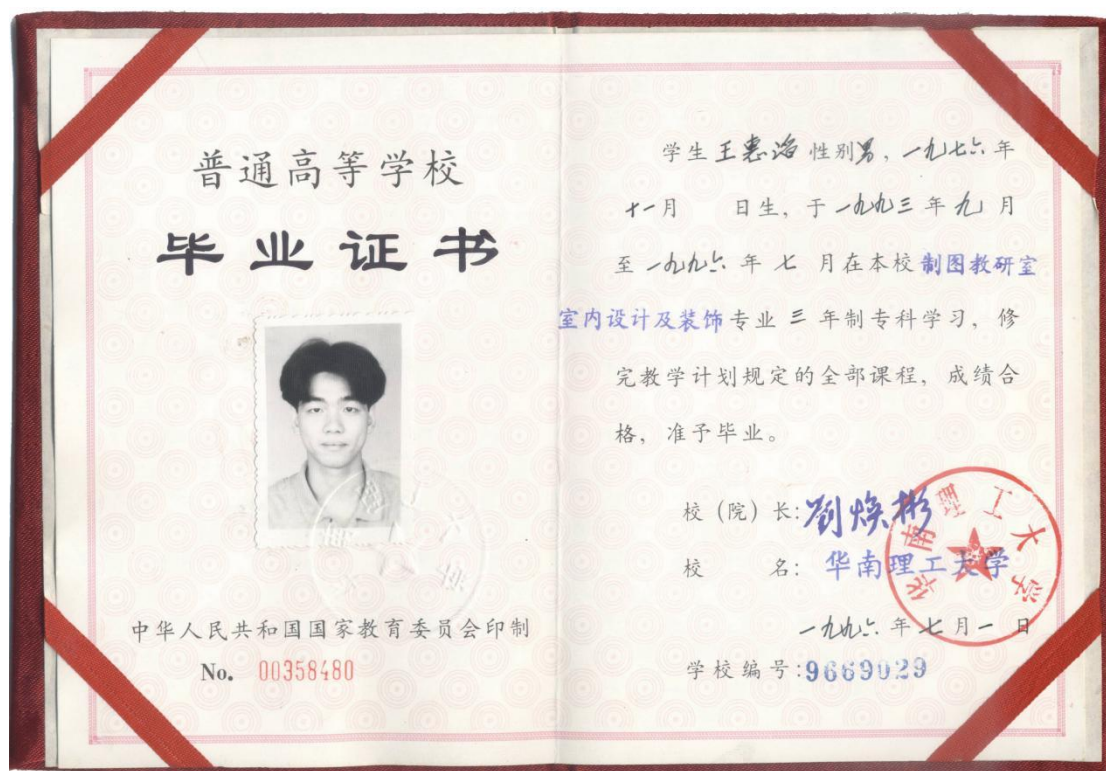 普通高等学校
毕业证书
中华人民共和国国家教育委员会印制
No. 00358480
学生王惠 性别男，一九七六年
十一月 日生，于一九九三年九月
至一九九六年七月在本校制图教研室
室内设计及装饰专业三年制专科学习，修
完教学计划规定的全部课程，成绩合
格，准予毕业。
校（院）长：劉焕彬
校 名：华南理工大学
华南理工大学
一九九六年七月一日
学校编号：9669029